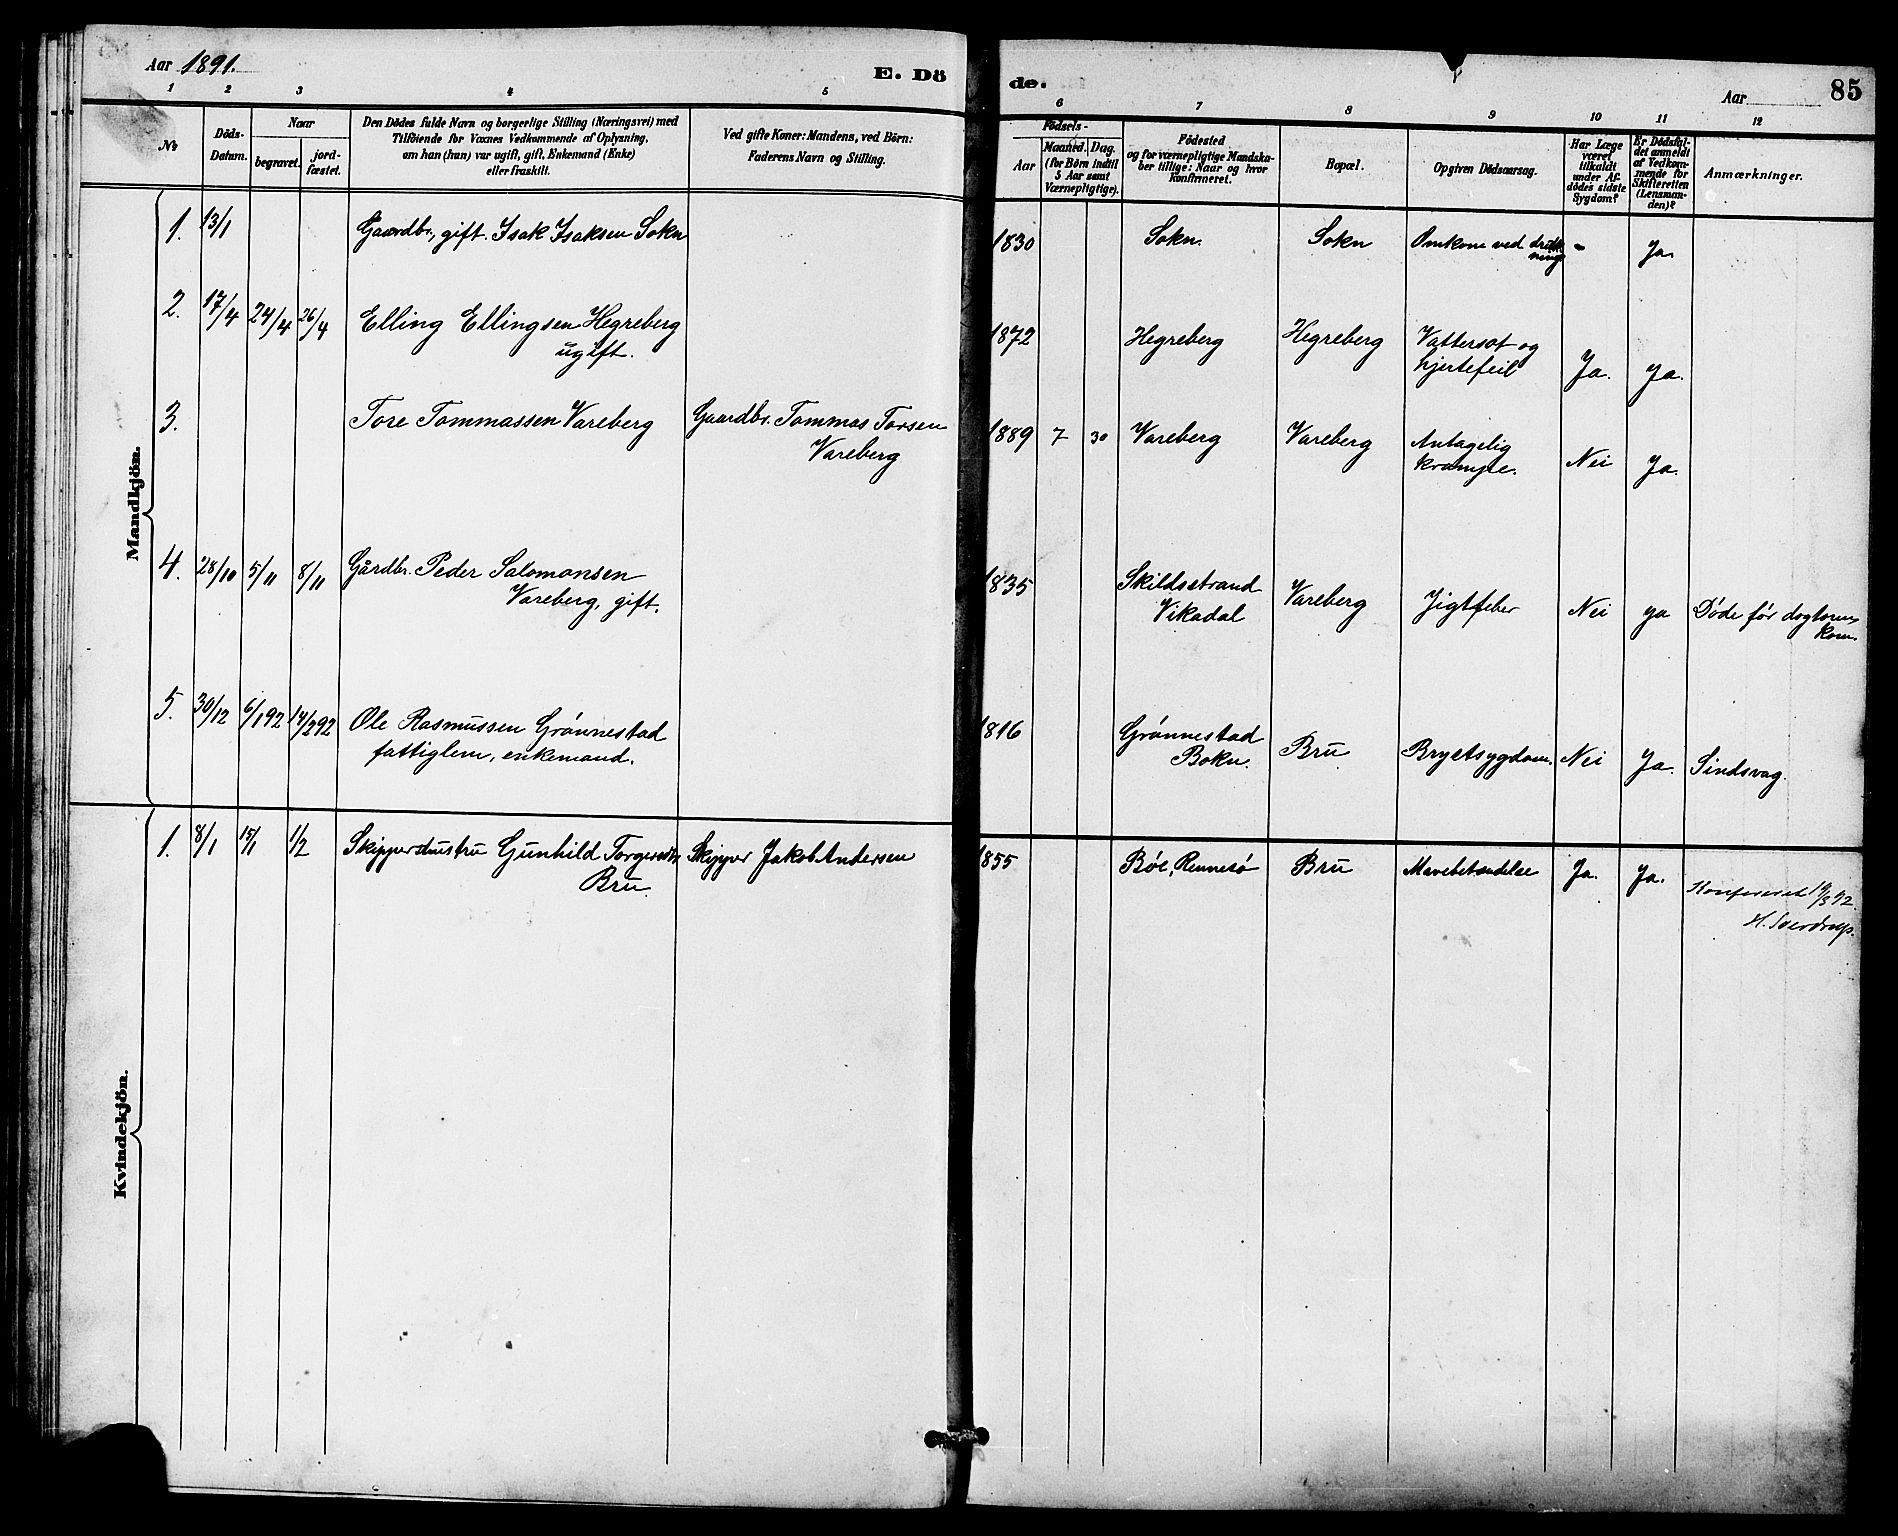 Aar 1891.
E. Dö
de.
Aar
85
1 2 3 4 5 6 7 8 9 10 11 12
№
Döds-
Datum.
Naar
begravet.
jord-
fæstet.
Den Dödes fulde Navn og borgerlige Stilling (Næringsvei) med
Tilföiende for Voxnes Vedkommende af Oplysning,
om han (hun) var ugift, gift, Enkemand (Enke)
eller fraskilt.
Ved gifte Koner: Mandens, ved Börn:
Faderens Navn og Stilling.
Födsels-
Aar
Maaned. Dag.
(for Börn indtil
5 Aar samt
Værnepligtige).
Födested
og for værnepligtige Mandska-
ber tillige: Naar og hvor
konfirmeret.
Bopæl.
Opgiven Dödsaarsag.
Har Læge
været
tilkaldt
under Af-
dödes sidste
Sygdom?
Er Dödsfal-
det anmeldt
af Vedkom-
mende for
Skifteretten
(Lensman-
den)?
Anmærkninger.
Mandkjön.
1. 13/1 Gaardbr., gift. Isak Isaksen Sokn 1830 Sokn. Sokn Omkom ved drukning - Ja.
2. 17/4 24/4 26/4 Elling Ellingsen Hegreberg 1872 Hegreberg Hegreberg Vattersot og
ugift. hjertefeil Ja. Ja.
3. Tore Tommassen Vareberg Gaardbr. Tommas Torsen 1889 7 30 Vareberg Vareberg Antagelig
Vareberg krampe. Nei Ja.
4. 28/10 5/11 8/11 Gårdbr. Peder Salomonsen 1835 Skildsstrand Vareberg Jigtfeber Nei ja Døde før dogtoren
Vareberg, gift. Vikadal kom.
5. 30/12 6/1 92 14/2 92 Ole Rasmussen Grønnestad 1816 Grønnestad Bru Brystsygdom. Nei Ja. Sindsvag.
fattiglem, enkemand. Bokn.
Kvindekjön.
1. 8/1 15/1 1/2 Skippershustru Gunhild Torgersdtr Skipper Jakob Andersen 1855 Bøe, Rennesø Bru Mavebetændelse Ja. Ja.
Bru
Konfereret 19/3 92.
H. Sverdrup.